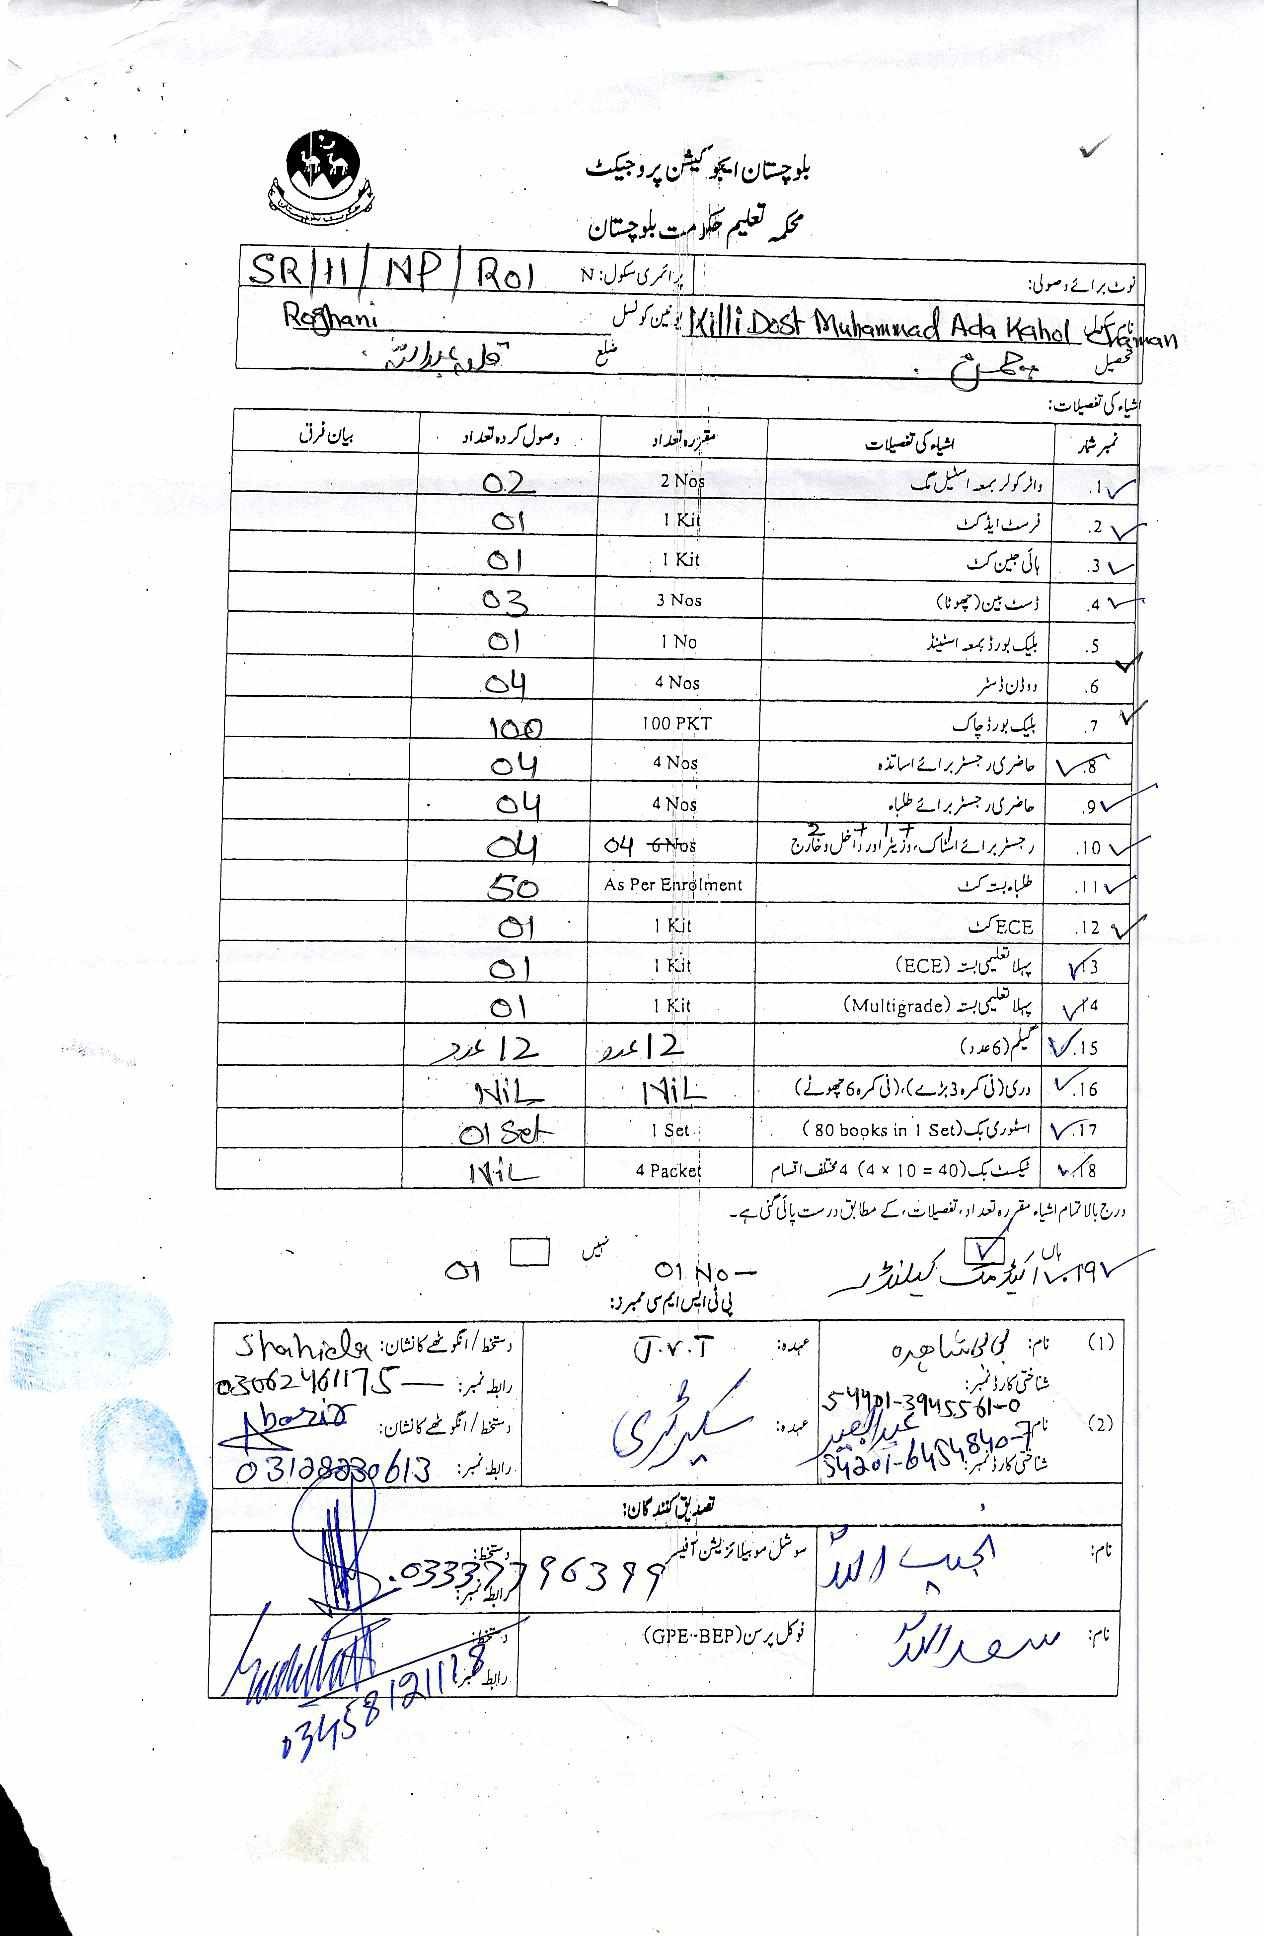 بلوچستان ایجوکیشن پروجیکٹ
محکمہ تعلیم حکومت بلوچستان
نوٹ برائے وصولی: پرائمری سکول: N SR/11/NP/R01
نام سکول Killi Dost Muhammad Ada Kahol Chaman یونین کونسل Roghani
تحصیل چمن ضلع قلعہ عبداللہ
اشیاء کی تفصیلات:
نمبر شمار اشیاء کی تفصیلات مقررہ تعداد وصول کردہ تعداد بیان فرق
1. واٹر کولر بمعہ اسٹیل مگ 2 Nos 02
2. فرسٹ ایڈ کٹ 1 Kit 01
3. ہائی جین کٹ 1 Kit 01
4. ڈسٹ بین (چھوٹا) 3 Nos 03
5. بلیک بورڈ بمعہ اسٹینڈ 1 No 01
6. ووڈن ڈسٹر 4 Nos 04
7. بلیک بورڈ چاک 100 PKT 100
8. حاضری رجسٹر برائے اساتذہ 4 Nos 04
9. حاضری رجسٹر برائے طلباء 4 Nos 04
2 + 1 + 1
10. رجسٹر برائے اسٹاک، وزیٹر اور داخل و خارج 6 Nos 04 04
11. طلباء بستہ کٹ As Per Enrolment 50
12. ECE کٹ 1 Kit 01
13 پہلا تعلیمی بستہ (ECE) 1 Kit 01
14 پہلا تعلیمی بستہ (Multigrade) 1 Kit 01
15. گلیم (6 عدد) 12 عدد 12 عدد
16. دری (فی کمرہ 3 بڑے)، (فی کمرہ 6 چھوٹے) NiL NiL
17. اسٹوری بک (80 books in 1 Set) 1 Set 01 Set
18 ٹیکسٹ بک (4 x 10 = 40) 4 مختلف اقسام 4 Packet NiL
درج بالا تمام اشیاء مقررہ تعداد، تفصیلات، کے مطابق درست پائی گئی ہے۔
ہاں نہیں
19 کیلنڈر 01 No – 01
پی ٹی ایس ایم سی ممبرز:
(1) نام: بی بی شاہدہ عہدہ: J.V.T دستخط/انگوٹھے کا نشان: Shahida
شناختی کارڈ نمبر: 54401-3945561-0 رابطہ نمبر: 03062461175
(2) نام: عبدالبصیر عہدہ: سکریٹری دستخط/انگوٹھے کا نشان:
شناختی کارڈ نمبر: 54201-6454840-7 رابطہ نمبر: 03128230613
تصدیق کنندگان:
نام: نجیب اللہ سوشل موبیلائزیشن آفیسر دستخط:
رابطہ نمبر: 03337796399
نام: سعد اللہ فوکل پرسن (GPE-BEP) دستخط:
رابطہ نمبر: 03458121118